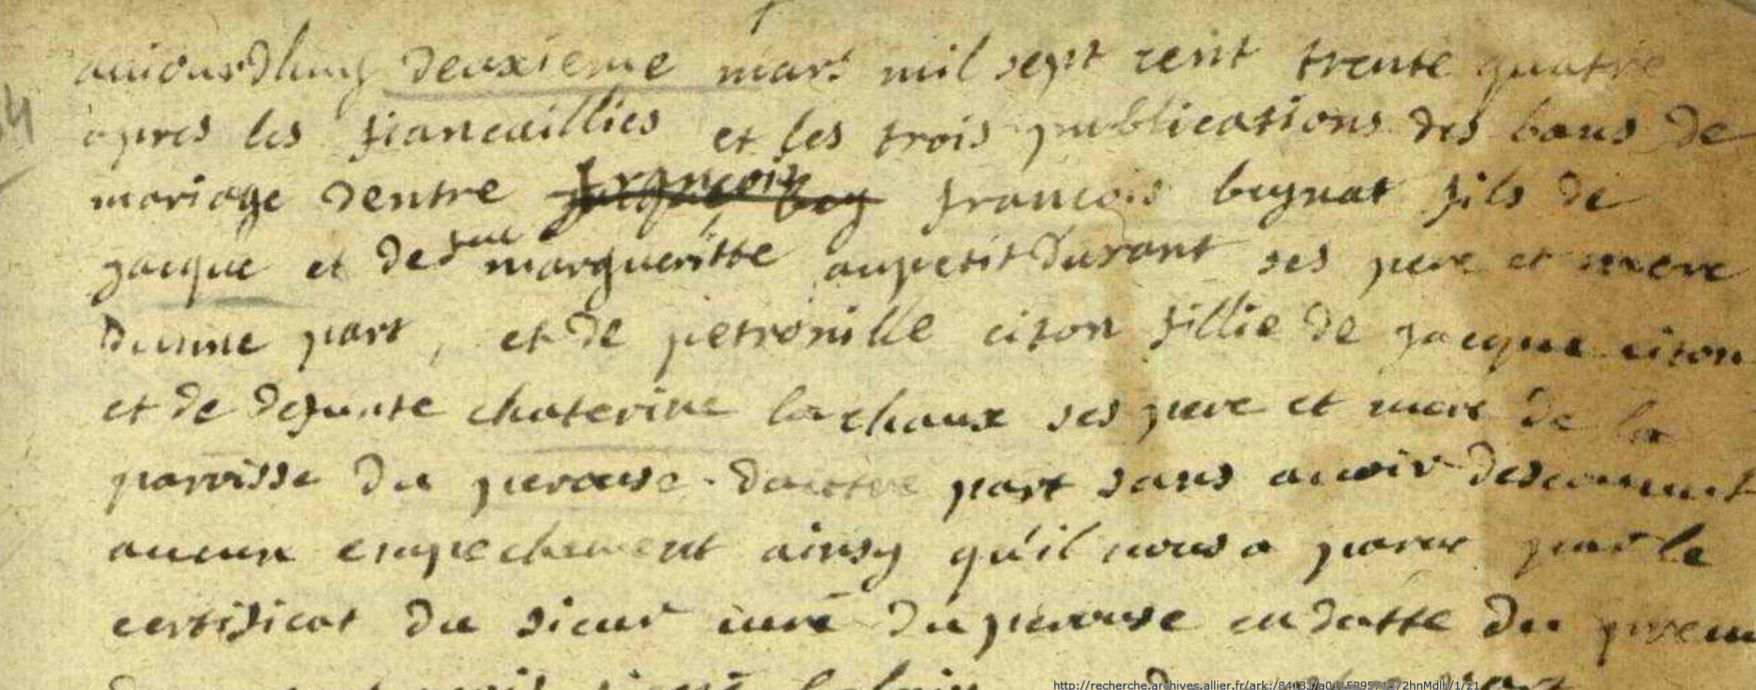 auiourdhuy deuxieme mars mil sept cent trente quatre
apres les fiancaillies et les trois publications des bans de
mariage dentre francois beynat fils de
jacque et de feue margueritte aupetit durant ses pere et mere
dunne part, et de petronille citon fillie de jacque citon
et de defunte chaterine lachaux ses pere et mere de la
paroisse du perouse dauttre part sans auoir descouuert
aucun empechement ainsy qu'il nous a parue par le
certificat du sieur curé du perouse en datte du
http://recherche.archives.allier.fr/ark:/